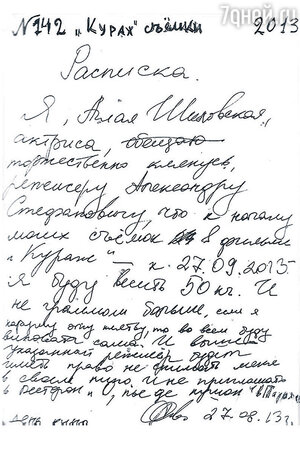 7дной.ru
№142 „Кураж" съёмки 2013
Расписка.
Я, Аглая Шиловская,
актриса, обещаю
торжественно клянусь,
режиссеру Александру
Стефановичу, что к началу
моих съёмок в фильме
„Кураж" – к 27.09.2013
я буду весить 50 кг. И
не граммом больше, если я
нарушу эту клятву, то во всем буду
виновата сама. И
указанный режиссер будет
иметь право не снимать меня
в своем и не приглашать
в ресторан
27.08.13г.